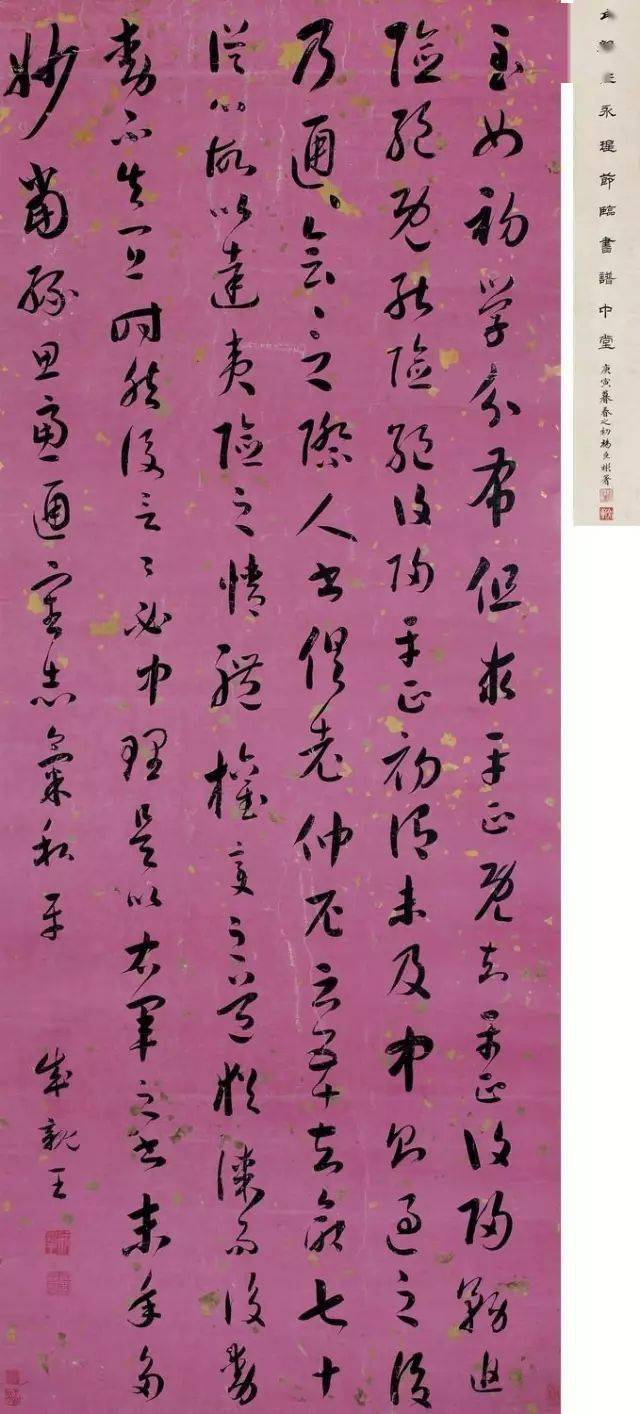 至如初学分布但求平正既知平正復歸務追
險絕既能險絕復歸平正初謂未及中則過之後
乃通〻會〻之際人書俱老仲尼云五十知命七十
從心故以達夷險之情體權變之道猶謀而後動
動不失宜時然後言〻必中理是以右軍之書末年多
妙當緣思慮通審志氣和平
成親王
永瑆節臨書譜中堂
庚寅暮春之初